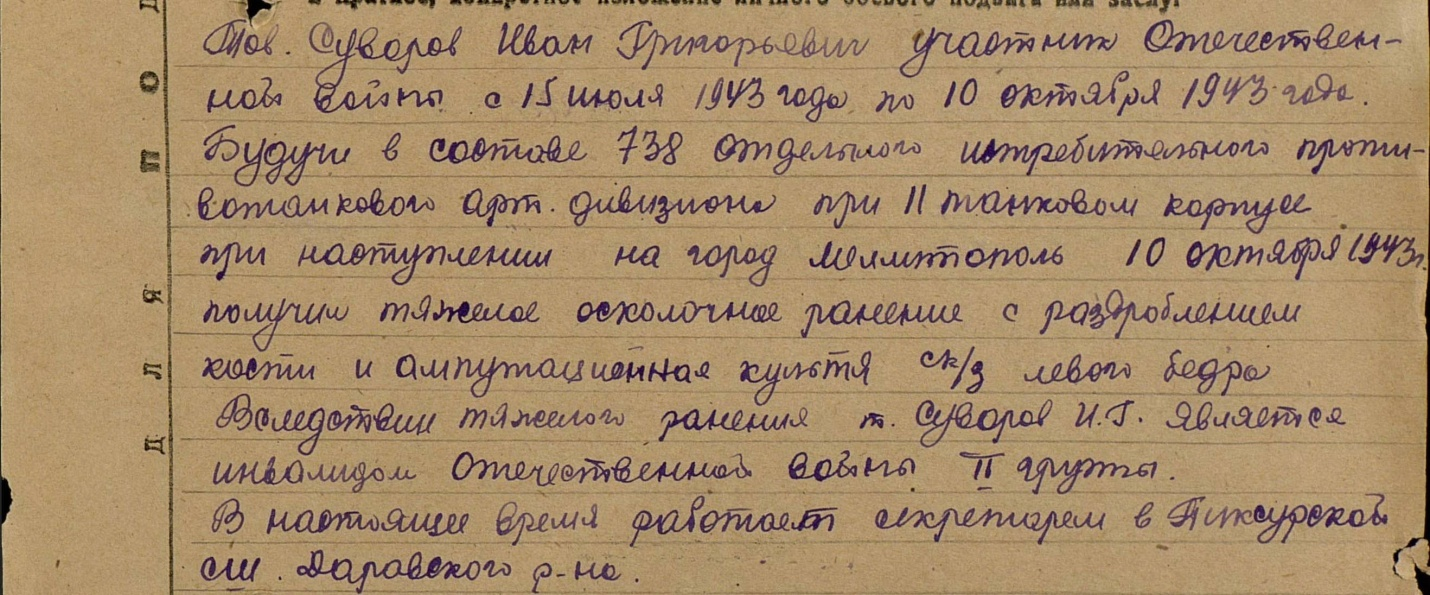 и краткое, конкретное изложение личного боевого подвига или заслуг
Тов. Суворов Иван Григорьевич участник Отечествен-
ной войны с 15 июля 1943 года по 10 октября 1943 года.
Будучи в составе 738 отдельного истребительного проти-
вотанкового арт. дивизиона при 11 танковом корпусе
при наступлении на город Мелитополь 10 октября 1943 г.
получил тяжелое осколочное ранение с раздроблением
кости и ампутационная культя ск/з левого бедра
Вследствии тяжелого ранения т. Суворов И.Г. является
инвалидом Отечественной войны II группы.
В настоящее время работает секретарем в Пиксурской
сш. Даравского р-на.
ДЛЯ ПОД